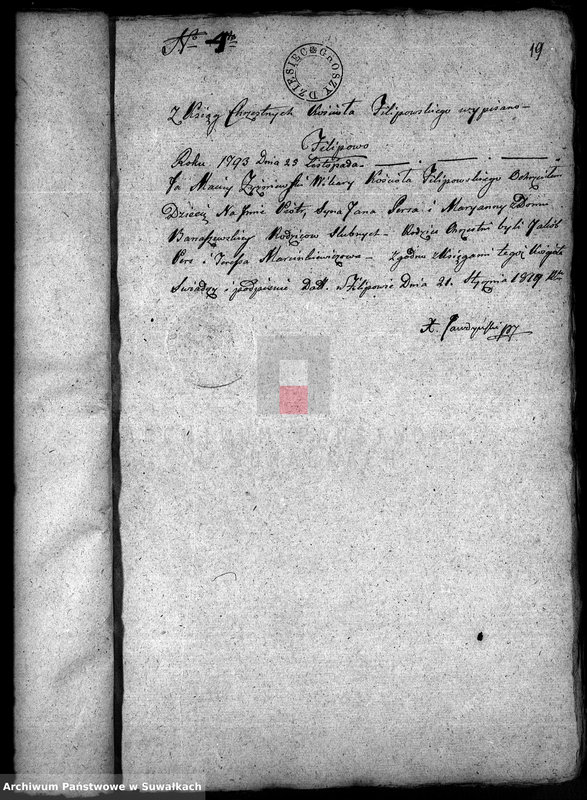 No 4to
19
DZIESIĘC GROSZY
Z Xsiąg Chrzestnych Kościoła Filipowskiego wypisano
Filipowo
Roku 1793 Dnia 23 Listopada
Ja Maciey Wikary Kościoła Filipowskiego Ochrzciłem
Dziecię Na Imie Piotr, Syna Jana Persa i Maryanny z Domu
Rodziców Slubnych – Rodzice Chrzestni byli Jakób
Pers i Teressa Marcinkiewiczowa – Zgodno z Xsięgami tegoż Kościoła
Swiadczę i podpisuie Datt. w Filipowie Dnia 21. Stycznia 1819 Rku
X.
Archiwum Państwowe w Suwałkach